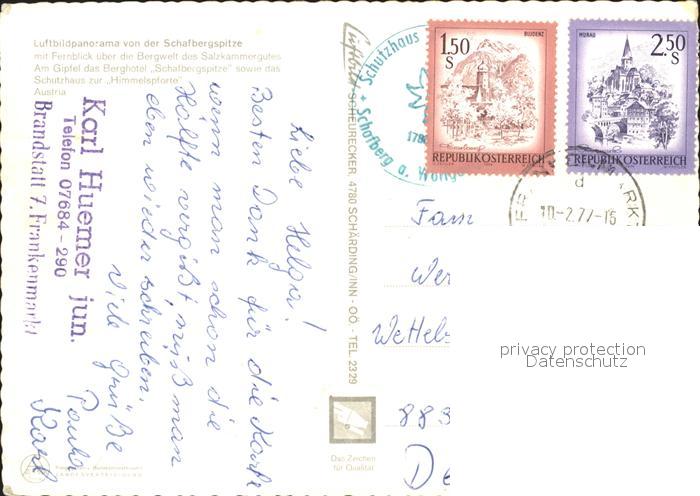 Luftbildpanorama von der Schafbergspitze
mit Fernblick über die Bergwelt des Salzkammergutes
Am Gipfel das Berghotel „Schafbergspitze" sowie das
Schutzhaus zur „Himmelspforte"
Austria
Karl Huemer jun.
Telefon 07684 - 290
Brandstatt 7, Frankenmarkt
Liebe Helga!
Besten Dank für die Karte
wenn man schon die
Hälfte vergißt, muß man
eben wieder schreiben.
Viele Grüße
Paula
Karl
SCHEURECKER, 4780 SCHÄRDING/INN - OÖ - TEL 2329
Das Zeichen
für Qualität
Schutzhaus
Schafberg a. Wolfg
1780
1.50
S
BLUDENZ
REPUBLIK ÖSTERREICH
MURAU
2.50
S
REPUBLIK ÖSTERREICH
10.-2.77-16
d
Fam
Wer
883
De
privacy protection
Datenschutz